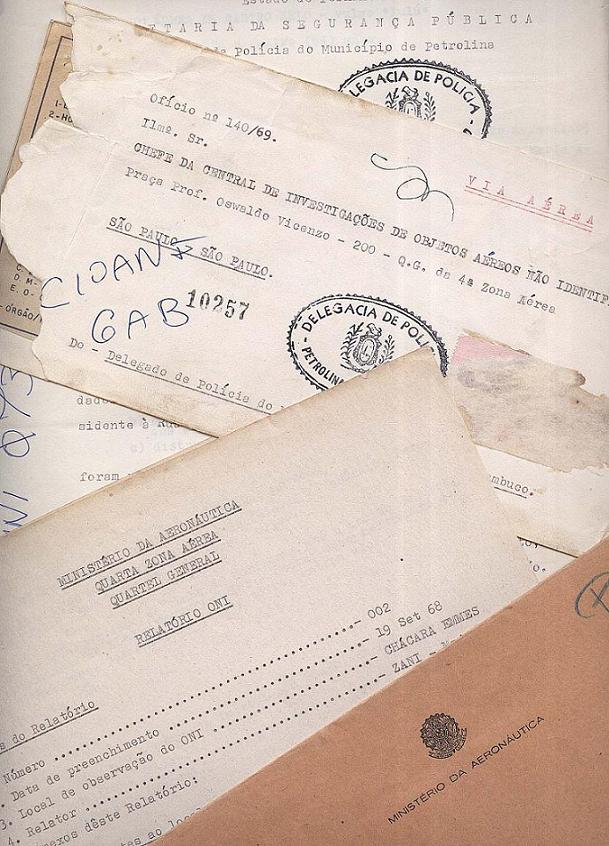 Estado de
TARIA DA SEGURANÇA PÚBLICA
Polícia do Município de Petrolina
DELEGACIA DE POLICIA
Ofício nº 140/69.
Ilmº. Sr.
CHEFE DA CENTRAL DE INVESTIGAÇÕES DE OBJETOS AÉREOS NÃO IDENTIF
Praça Prof. Oswaldo Vicenzo - 200 - Q.G. da 4ª Zona Aérea
VIA AÉREA
SÃO PAULO - SÃO PAULO.
CIOANI
GAB
10257
DELEGACIA DE POLI
PETROLINA
Do - Delegado de Polícia do
dado
sidente à
foram
mbuco.
MINISTÉRIO DA AERONÁUTICA
QUARTA ZONA AÉREA
QUARTEL GENERAL
RELATÓRIO ONI
s do Relatório
Número - 002
. Data de preenchimento - 19 Set 68
3. Local de observação do ONI - CHÁCARA EMMES
4. Relator - ZANI - M
nexos dêste Relatório:
MINISTÉRIO DA AERONÁUTICA